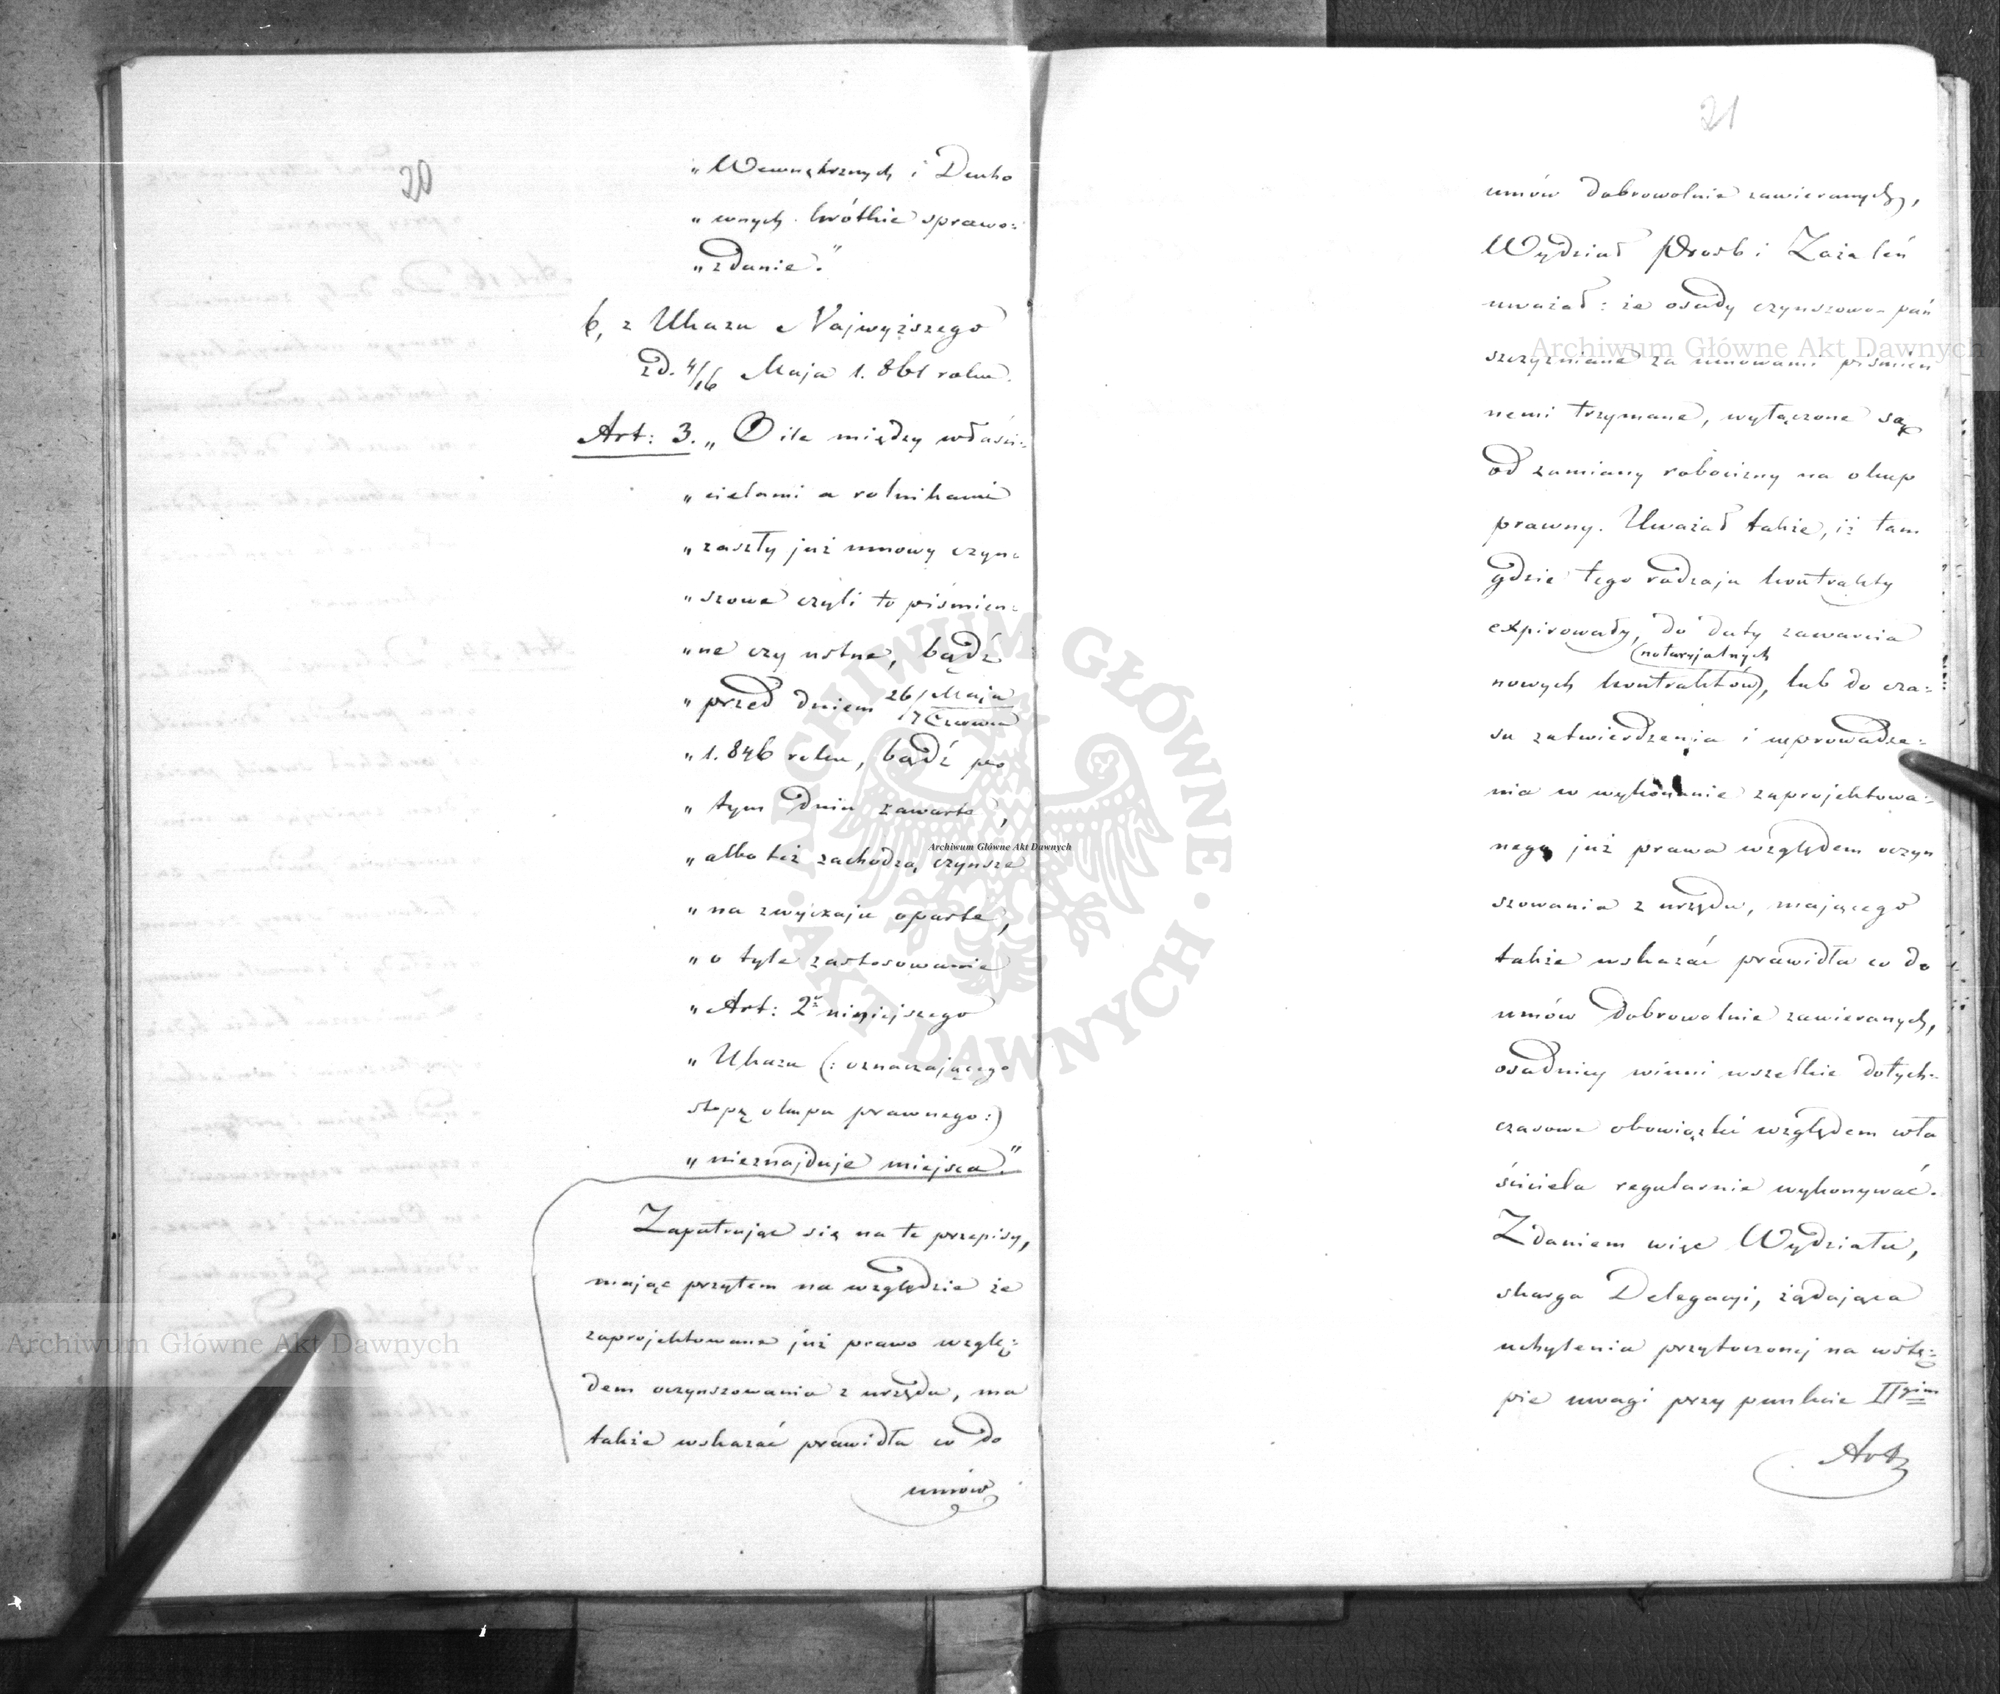 20
„Wewnętrznych i Ducho
„wnych krótkie sprawo:
„zdanie."
b, z Ukazu Najwyższego
zd. 4/16 Maja 1.861 roku.
Art: 3. „O ile między właści:
„cielami a rolnikami
„zaszły już umowy czyn:
„szowe czyli to piśmien:
„ne czy ustne, bądź
„przed dniem 26 Maja/7 Czerwca
„1.846 roku, bądź po
„tym dniu zawarte,
„albo też zachodzą czynsze
„na zwyczaju oparte,
„o tyle zastosowanie
„Art: 2º niniejszego
„Ukazu (: oznaczającego
stopę okupu prawnego:)
„nieznajduje miejsca."
Zapatrując się na te przepisy,
mając przytem na względzie że
zaprojektowane już prawo wzglę:
dem oczynszowania z urzędu, ma
także wskazać prawidła co do
umów
21
umów dobrowolnie zawieranych,
Wydział Prośb i Zażaleń
uważał: że osady czynszowo-pań
szczyzniane za umowami piśmien
nemi trzymane, wyłączone są
od zamiany robocizny na okup
prawny. Uważał także, iż tam
gdzie tego rodzaju kontrakty
expirowały, do daty zawarcia
(notaryjalnych
nowych kontraktów), lub do cza:
su zatwierdzenia i wprowadze:
nia w wykonanie zaprojektowa:
nego już prawa względem oczyn
szowania z urzędu, mającego
także wskazać prawidła co do
umów dobrowolnie zawieranych,
osadnicy winni wszelkie dotych:
czasowe obowiązki względem wła
ściciela regularnie wykonywać.
Zdaniem więc Wydziału,
skarga Delegacyi, żądająca
uchylenia przytoczonej na wstę:
pie uwagi przy punkcie IIgim
Art
Archiwum Główne Akt Dawnych
Archiwum Główne Akt Dawnych
Archiwum Główne Akt Dawnych
ARCHIWUM GŁÓWNE · AKT DAWNYCH ·